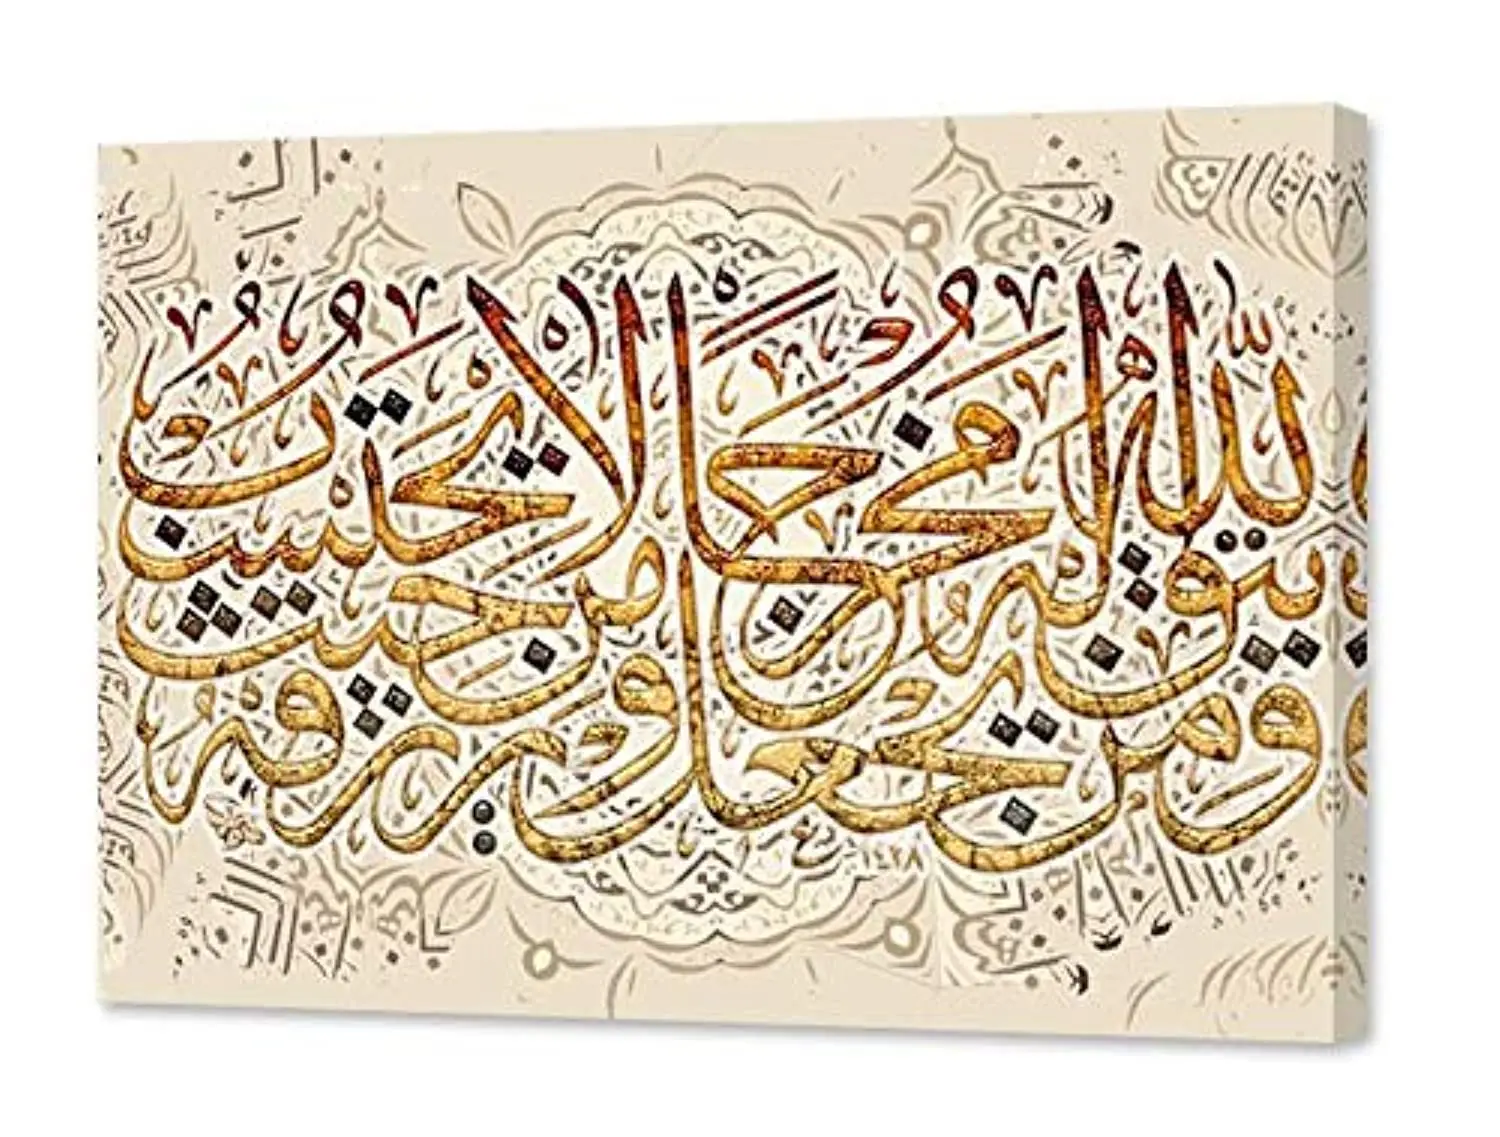 وَمَنْ يَتَّقِ اللَّهَ يَجْعَلْ لَهُ مَخْرَجًا وَيَرْزُقْهُ مِنْ حَيْثُ لَا يَحْتَسِبُ
١٤٢٨